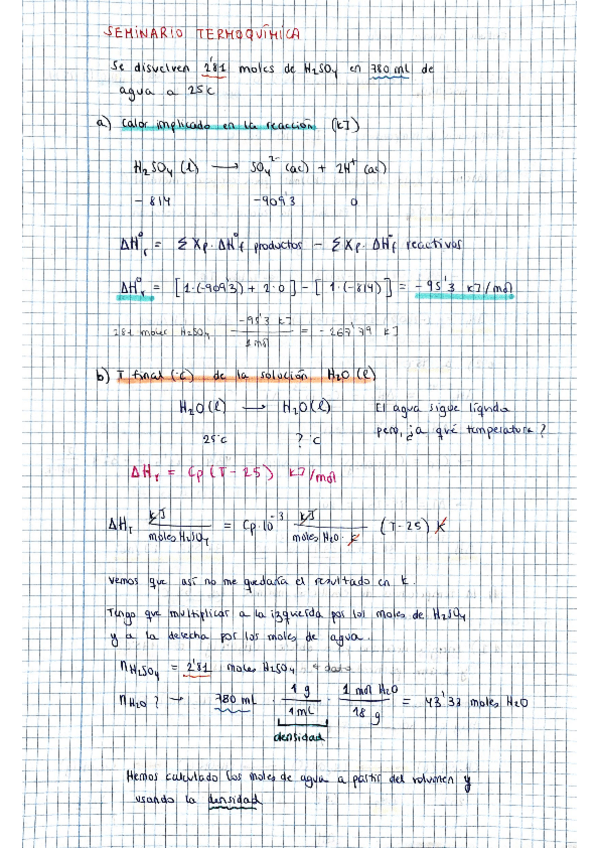 SEMINARIO TERMOQUÍMICA
Se disuelven 2'81 moles de H₂SO₄ en 780 ml de
agua a 25°C
a) Calor implicado en la reacción (kJ)
H₂SO₄ (l) → SO₄²⁻ (ac) + 2H⁺ (ac)
- 814 -909'3 0
ΔH°r = Σ Xp · ΔH°f productos - Σ Xp · ΔH°f reactivos
ΔH°r = [1·(-909'3) + 2·0] - [1·(-814)] = -95'3 kJ/mol
2'81 moles H₂SO₄ · -95'3 kJ / 1 mol = -267'79 kJ
b) T final (°C) de la solución, H₂O (l)
H₂O (l) → H₂O (l) El agua sigue líquida
25°C ? °C pero, ¿a qué temperatura?
ΔHr = Cp (T - 25) kJ/mol
ΔHr kJ / moles H₂SO₄ = Cp · 10⁻³ kJ / moles H₂O · K (T - 25) K
Vemos que así no me quedaría el resultado en K.
Tengo que multiplicar a la izquierda por los moles de H₂SO₄
y a la derecha por los moles de agua.
n H₂SO₄ = 2'81 moles H₂SO₄ → dato
n H₂O ? → 780 mL · 1 g / 1 mL · 1 mol H₂O / 18 g = 43'33 moles H₂O
densidad
Hemos calculado los moles de agua a partir del volumen y
usando la densidad